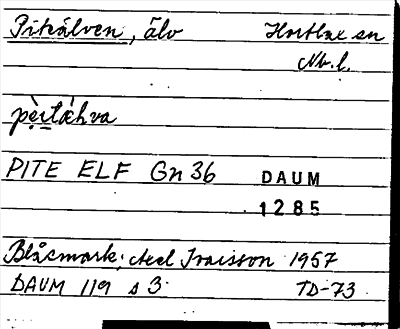 Piteälven, älv Hortlax sn
Nb. l.
pèi̯tæ̀hva
PITE ELF Gn 36 DAUM
1285
Blåsmark; Axel Isaisson 1957
DAUM 119 s 3 TD-73